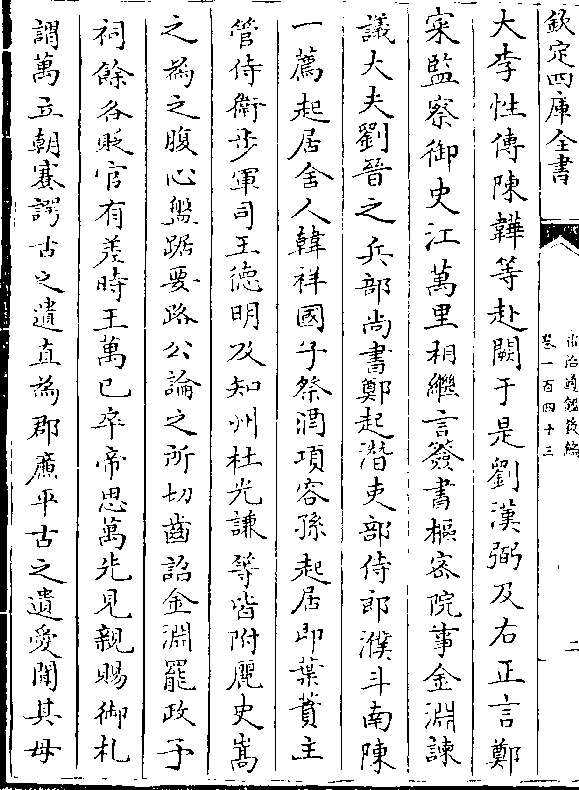 欽定四庫全書
資治通鑑後編
卷一百四十三
二
大李性傳陳韡等赴闕于是劉漢弼及右正言鄭
寀監察御史江萬里相繼言簽書樞密院事金淵諫
議大夫劉晉之兵部尚書鄭起潛吏部侍郎濮斗南陳
一薦起居舍人韓祥國子祭酒項容孫起居郎葉賁主
管侍衛步軍司王德明及知州杜光謙等皆附麗史嵩
之為之腹心盤踞要路公論之所切齒詔金淵罷政予
祠餘各貶官有差時王萬已卒帝思萬先見親賜御札
謂萬立朝蹇諤古之遺直為郡廉平古之遺愛聞其母